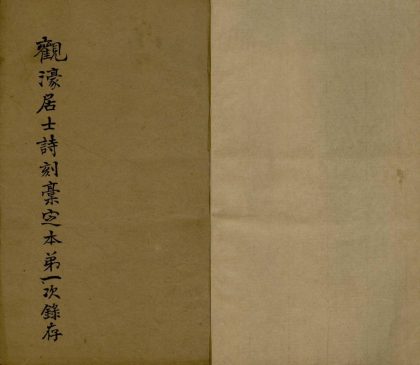 觀濠居士詩刻稾定本弟一次錄存